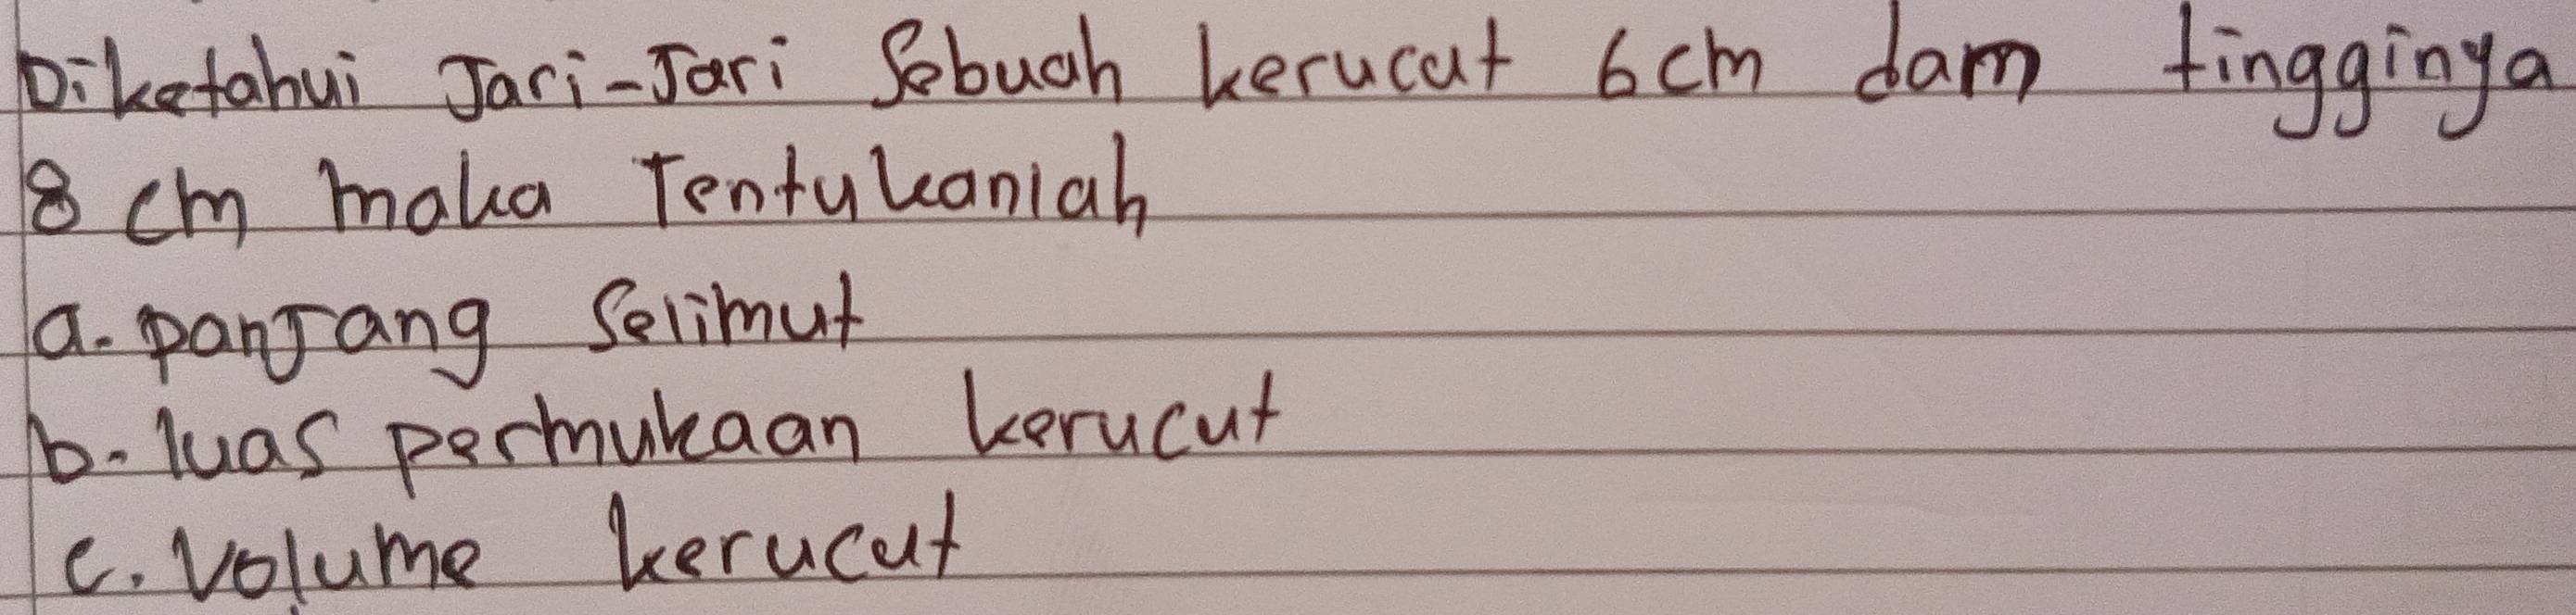 Diketahui Jari-Jari Sebuah kerucut 6cm dam tingginya
8 cm maka Tentukanlah
a. panjang Selimut
b. luas permukaan kerucut
c. Volume kerucut